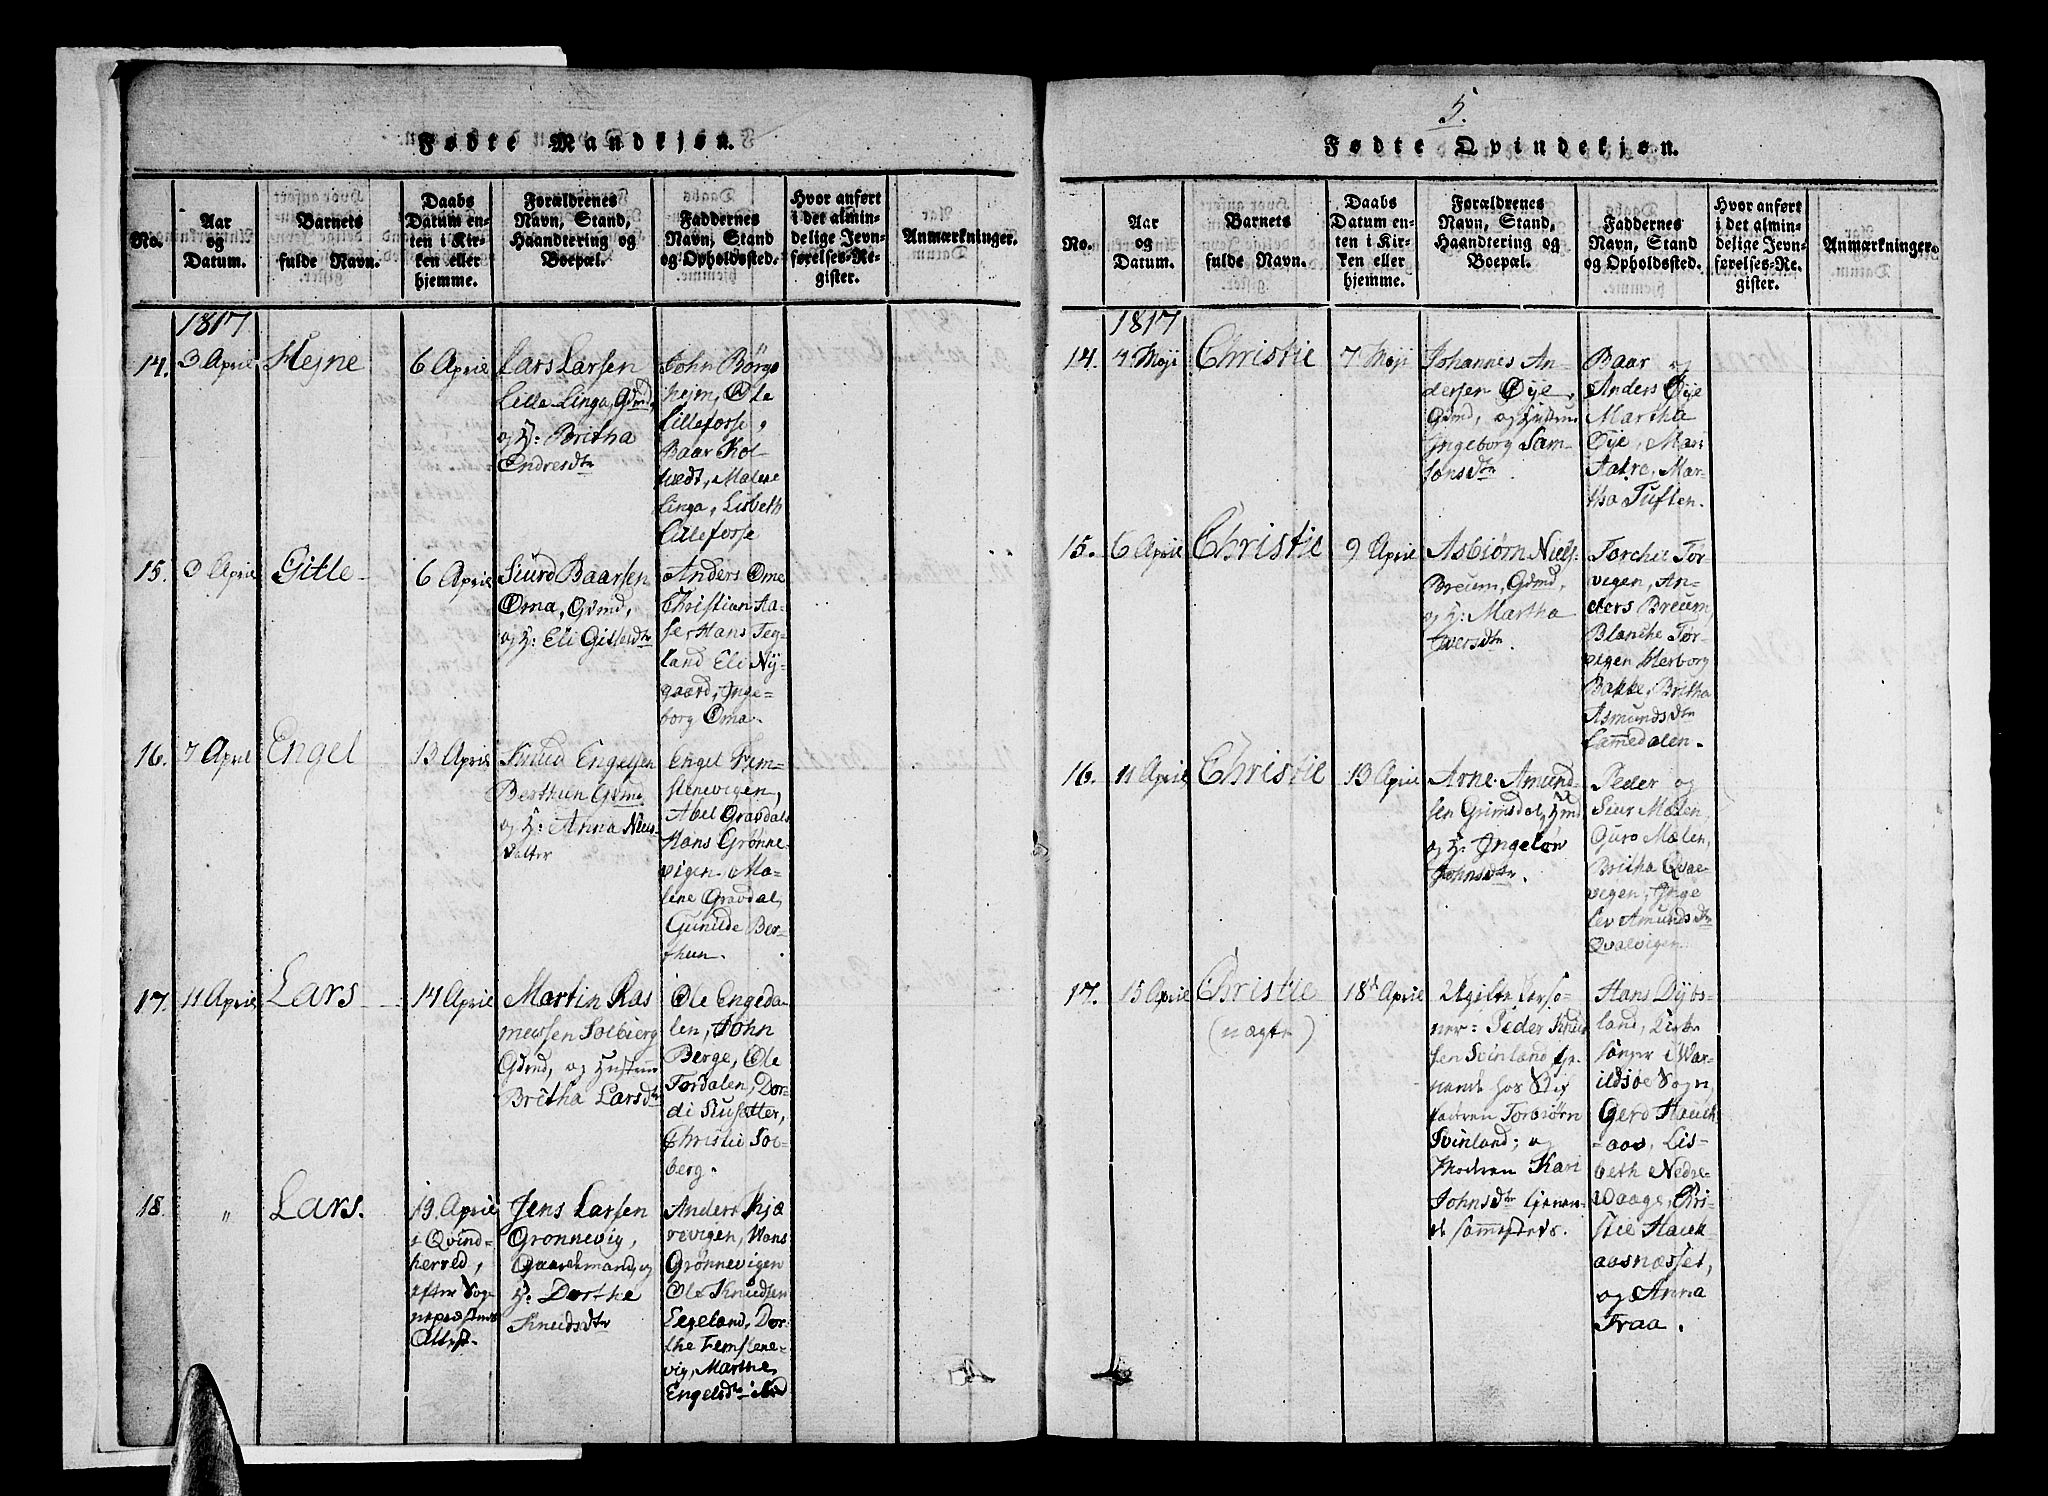 Fødte Mandkjøn.
No.
Aar
og
Datum.
Barnets
fulde Navn.
Daabs
Datum en-
ten i Kir-
ken eller
hjemme.
Forældrenes
Navn, Stand,
Haandtering og
Boepæl.
Faddernes
Navn, Stand
og Opholdssted.
Hvor anført
i det almin-
delige Jevn-
førelses-Re-
gister.
Anmærkninger.
1817
14.
3 April
Hejne
6 April
Lars Larsen
Lille Linga, Gdmd,
og H: Britha
Endresdtr
John Børgs
hejm, Ole
Lilleforse,
Baar Kol-
tvedt, Malene
Linga, Lisbeth
Lilleforse
15.
3 April
Gitle
6 April
Siurd Baarsen
Oma, Gdmd,
og H: Eli Gitlesdtr
Anders Ome
Christian Aa-
se, Hans Teg-
land Eli Ny-
gaard, Inge-
borg Oma.
16.
7 April
Engel
13 April
Knud Engelsen
Berthun Gdmd
og H: Anna Niels-
datter
Engel Fem-
stenevigen,
Abel Gravdal
Hans Grønne-
vigen, Ma-
lene Gravdal,
Gunilde Ber-
thun.
17.
11 April
Lars
14 April
Martin Ras
mussen Solbierg
Gdmd, og Hustrue
Britha Larsdtr
Ole Engeda-
len, John
Berge, Ole
Tordalen, Dor-
di
Christie Sol-
berg.
18.
"
Lars.
19 April
i Qvind-
herred,
efter Sog-
nepræstens
Attest.
Jens Larsen
Grønnevig,
Gaardmand, og
H: Dorthe
Knudsdtr
Anders Kjæ
revigen, Hans
Grønnevigen
Ole Knudsen
Egeland, Dor-
the Femstene-
vig, Marthe
Engelsdtr ibid
5.
Fødte Qvindekjøn.
No.
Aar
og
Datum.
Barnets
fulde Navn.
Daabs
Datum en-
ten i Kir-
ken eller
hjemme.
Forældrenes
Navn, Stand,
Haandtering og
Boepæl.
Faddernes
Navn, Stand
og Opholdssted.
Hvor anført
i det almin-
delige Jevn-
førelses-Re-
gister.
Anmærkninger.
1817
14.
4 Maji
Christie
7 Maji
Johannes An-
dersen Øye,
Gdmd, og Hustrue
Ingeborg Sam-
sonsdtr.
Baar og
Anders Øye
Martha
Øye, Mari
Aakre, Mar-
tha Tuften.
15.
6 April
Christie
9 April
Asbiørn Niels.
Breum, Gdmd,
og H: Martha
Iversdtr.
Torchel Tor-
vigen, An-
ders Breum,
Blanche Tor-
vigen Herborg
Bakke, Britha
Asmundsdtr
Lammedalen.
16.
11 April
Christie
13 April
Arne Amund-
sen Grimsdal, Hmd
og H: Ingeløv
Johnsdtr.
Peder og
Siur Mælen,
Guro Mælen,
Britha Qval-
vigen, Inge
lev Amundsdtr
Qvalvigen.
17.
15 April
Christie
(uægte)
18de April
Ugifte Perso-
ner: Peder Knud
sen Svinland tje-
nende hos
Torbiørn
Svinland; og
Moderen Kari
Johnsdtr tjenen-
de sammesteds.
Hans Dybs-
land, Kirke
sanger i Var-
ildsøe Sogn,
Gerd Hauk-
aas, Lis-
beth Nedre-
Vaage, Chri-
stie Hauk-
aasnæsset,
og Anna
Fraa.